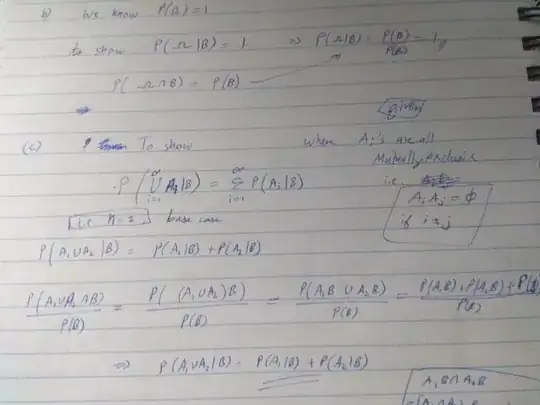 b) We know P(Ω) = 1
to show P(Ω|B) = 1 ⇒ P(Ω|B) = P(B)/P(B) = 1
P(Ω∩B) = P(B)
given
(c) To show where Ai's are all
Mutually exclusive
P(∞⋃i=1 Ai|B) = ∞∑i=1 P(Ai|B) i.e.
AiAj = φ
if i≠j
i.e n=2, base case
P(A1∪A2|B) = P(A1|B) + P(A2|B)
P(A1∪A2∩B)/P(B) = P((A1∪A2)B)/P(B) = P(A1B ∪ A2B)/P(B) = P(A1B)+P(A2B)+P(/P(B)
⇒ P(A1∪A2|B) = P(A1|B) + P(A2|B)
A1B∩A2B